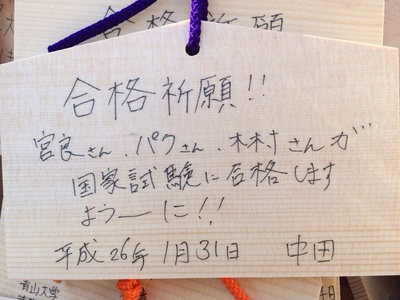 合格祈願
合格祈願!!
宮良さん、パクさん、木村さんが…
国家試験に合格します
よう〜に!!
平成26年1月31日 中田
青山大学